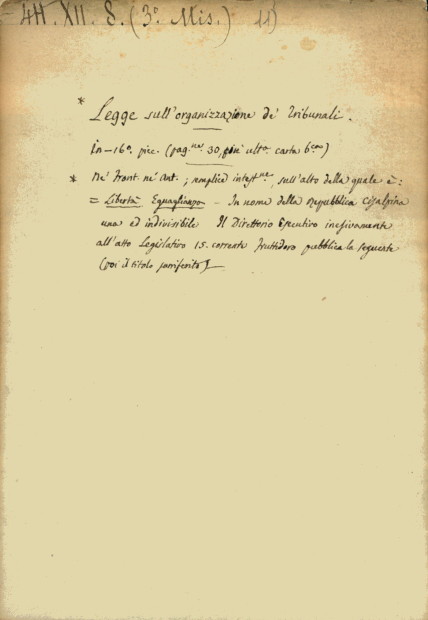 4H. XII. 8. (3° Mis.) 11)
* Legge sull'organizzazione de' Tribunali.
In-16°. picc. (pag.ne 30, più ult.a carta b.ca)
* Ne' Front. ne' Ant.; semplice intest.ne, sull'alto della quale è:
= Libertà Eguaglianza - In nome della Repubblica Cisalpina
una ed indivisibile Il Direttorio Esecutivo inesivamente
all'atto Legislativo 15. corrente Fruttidoro pubblica la seguente
(poi il titolo surriferito)